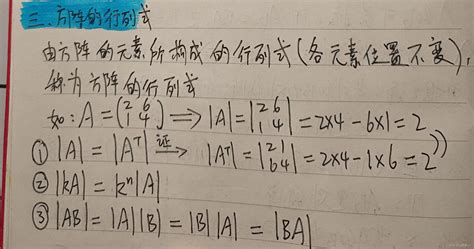 三.方阵的行列式
由方阵的元素所构成的行列式(各元素位置不变),
称为方阵的行列式
如:A=(2 6 1 4)⟹|A|=|2 6 1 4|=2×4-6×1=2
①|A|=|Aᵀ| 证→ |Aᵀ|=|2 1 6 4|=2×4-1×6=2))
②|kA|=kⁿ|A|
③|AB|=|A||B|=|B||A|=|BA|